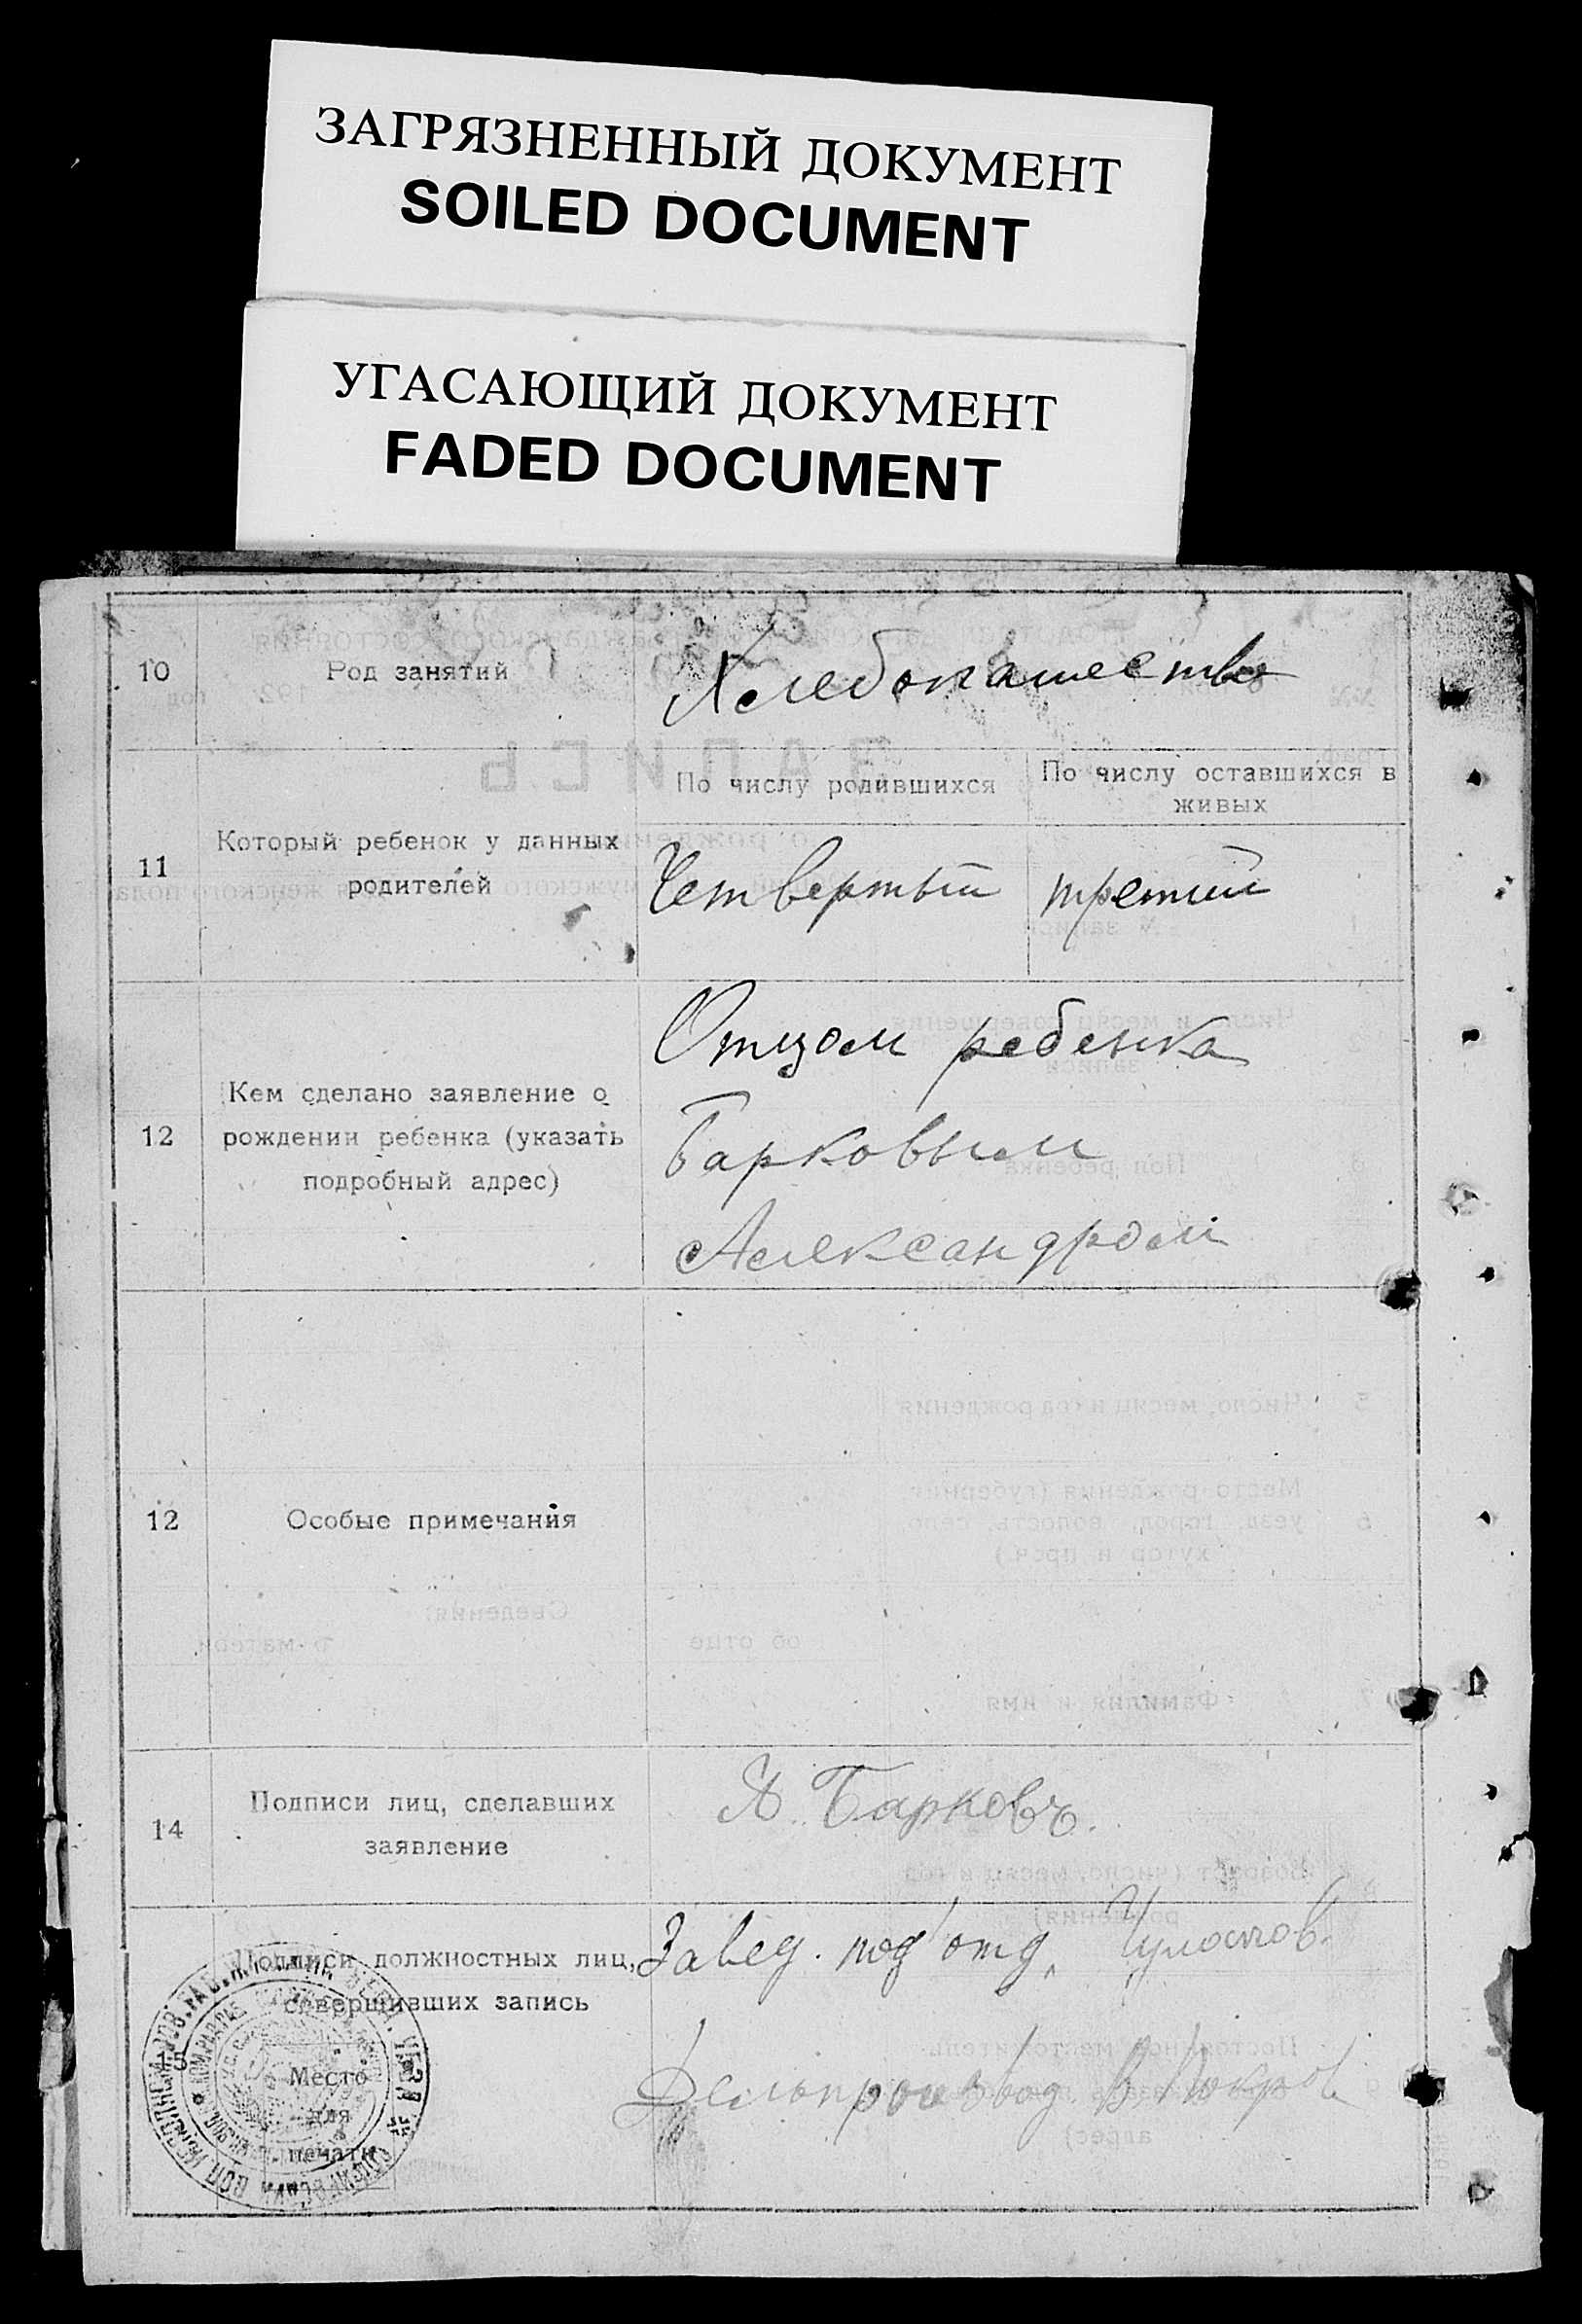 ЗАГРЯЗНЕННЫЙ ДОКУМЕНТ
SOILED DOCUMENT
УГАСАЮЩИЙ ДОКУМЕНТ
FADED DOCUMENT
10 Род занятий Хлебопашество
По числу родившихся По числу оставшихся в
живых
11 Который ребенок у данных
родителей Четвертый третий
Отцом ребенка
Кем сделано заявление о
12 рождении ребенка (указать Барковым
подробный адрес)
Александром
12 Особые примечания
14 Подписи лиц, сделавших А. Барковъ.
заявление
Подписи должностных лиц, Завед. подотд.
совершивших запись
15 Место Делопроизвод.
для
печати